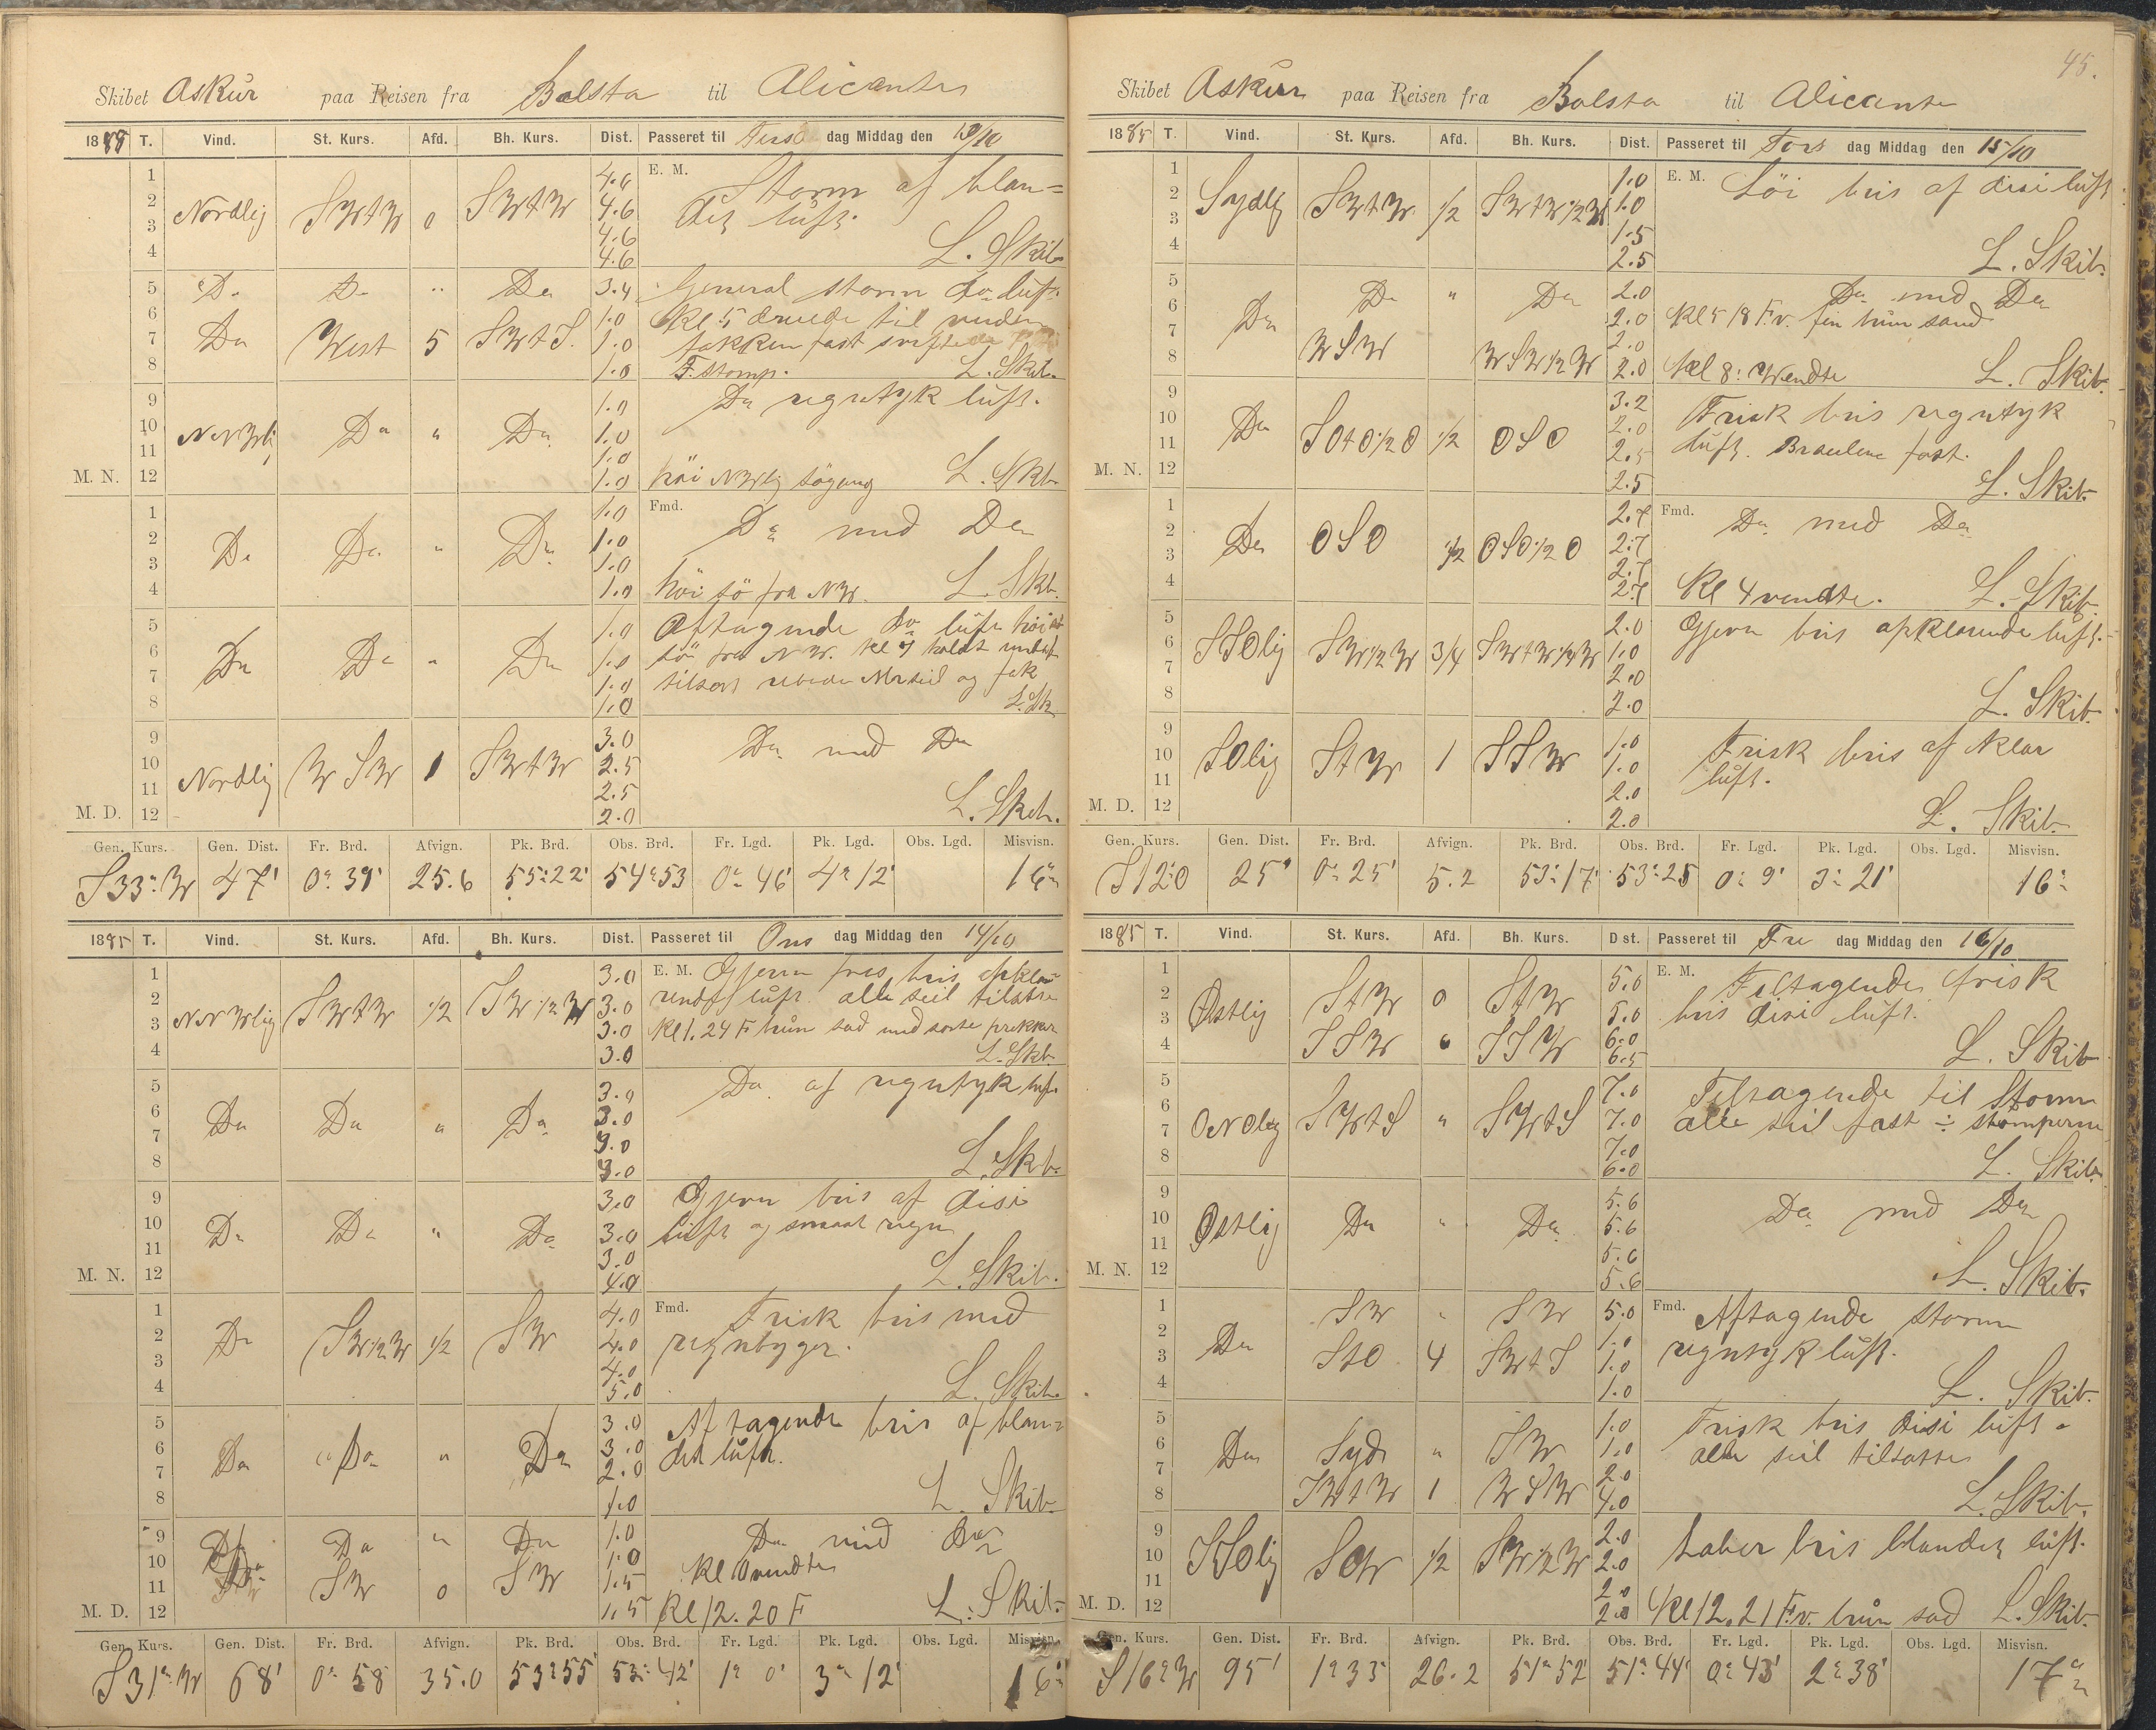 Skibet Askur paa Reisen fra Balsta til Alicante
18 T. Vind. St. Kurs. Afd. Bh. Kurs. Dist. Passeret til dag Middag den 13/10
E. M. Storm af blan=
det luft.
1 2 3 4 Nordlig SWtW 0 SWtW 4.6 4.6 4.6 4.6 L. Skib.
5 Do Do " Do 3.4 General storm do luft.
6 7 8 Do West 5 SWtS. 1.0 1.0 1.0 Kl 5
fast
F. stomp. L. Skib.
9 10 11 M. N. 12 NNWlig Do " Do 1.0 1.0 1.0 1.0 Do regntyk luft.
höi NWlig sögang L. Skb.
Fmd.
1 2 3 4 Do Do " Do 1.0 1.0 1.0 1.0 Do med Do
höi sö fra NW. L. Skb.
5 6 7 8 Do Do " Do 1.0 1.0 1.0 1.0 Aftagende do luft höi
sö fra NW. Kl 7 holdt
og
L. Sk
9 10 11 M. D. 12 Nordlig WSW 1 SWtW 3.0 2.5 2.5 2.0 Do med Do
L. Skib.
Gen. Kurs. Gen. Dist. Fr. Brd. Afvign. Pk. Brd. Obs. Brd. Fr. Lgd. Pk. Lgd. Obs. Lgd. Misvisn.
S33°W 47' 0° 39' 25.6 55°22' 54°53 0° 46' 4° 12' 16°
1885 T. Vind. St. Kurs. Afd. Bh. Kurs. Dist. Passeret til Ons dag Middag den 14/10
E. M. Gjevn bris opkla-
rende luft alle seil tilsatte
1 2 3 4 NNWlig SWtW 1/2 SW1/2W 3.0 3.0 3.0 3.0 Kl 1. 24 F brün sad med sorte prikker
L. Skb.
5 6 7 8 Do Do " Do 3.0 3.0 3.0 3.0 Do af regntyk luft
L. Skb.
9 10 11 M. N. 12 Do Do " Do 3.0 3.0 3.0 4.0 Gjevn bris af disi
luft og smaat regn
L. Skib.
Fmd.
1 2 3 4 Do SW1/2W 1/2 SW 4.0 4.0 4.0 5.0 Frisk bris med
regnbyger.
L. Skib.
5 6 7 8 Do Do " Do 3.0 3.0 2.0 1.0 Aftagende bris af blan=
det luft.
L. Skib.
9 10 Do Do " Do 1.0 1.0 Do med Do
11 M. D. 12 SW 0 SW 1.5 1.5 Kl vendte
Kl 12. 20 F L. Skib.
Gen. Kurs. Gen. Dist. Fr. Brd. Afvign. Pk. Brd. Obs. Brd. Fr. Lgd. Pk. Lgd. Obs. Lgd. Misvisn.
S31°W 68' 0° 58 35.0 53°55' 53°42' 1° 0' 3° 12' 16°
45.
Skibet Askur paa Reisen fra Balsta til Alicante
1885 T. Vind. St. Kurs. Afd. Bh. Kurs. Dist. Passeret til Tors dag Middag den 15/10
1 2 3 4 Sydlig SWtW 1/2 SWtW1/2W 1.0 1.0 1.5 2.5 E. M. Löi bris af disi luft
L. Skib.
5 6 Do Do " Do 2.0 2.0 Do med Do
Kl 5 18 F.v. fin brün sand
7 8 WSW WSW1/2W 2.0 2.0 Kl 8: Wendte L. Skib.
9 10 11 M. N. 12 Do SOtO1/2O 1/2 OSO 3.2 2.0 2.5 2.5 Frisk bris regntyk
luft. fast.
L. Skib.
1 2 3 4 Do OSO 1/2 OSO1/2O 2.7 2.7 2.7 2.7 Fmd. Do med Do
Kl 4 vendte. L. Skib.
5 6 7 8 SSOlig SW1/2W 3/4 SWtW1/4W 2.0 1.0 2.0 2.0 Gjevn bris opklarende luft.
L. Skib.
9 10 11 M. D. 12 SOlig StW 1 SSW 1.0 1.0 2.0 2.0 Frisk bris af klar
luft.
L. Skib.
Gen. Kurs. Gen. Dist. Fr. Brd. Afvign. Pk. Brd. Obs. Brd. Fr. Lgd. Pk. Lgd. Obs. Lgd. Misvisn.
S12°O 25' 0° 25' 5.2 53°17' 53°25 0° 9' 3° 21' 16°
1885 T. Vind. St. Kurs. Afd. Bh. Kurs. Dist. Passeret til Fre dag Middag den 16/10
1 2 3 4 Østlig StW 0 StW 5.0 5.0 E. M. Tiltagende frisk
SSW 0 SSW 6.0 6.5 bris disi luft.
L. Skib
5 6 7 8 ONOlig SWtS " SWtS 7.0 7.0 7.0 6.0 Tiltagende til Storm
alle seil fast ÷ stomperne
L. Skib.
9 10 11 M. N. 12 Østlig Do " Do 5.6 5.6 5.6 5.6 Do med Do
L. Skib.
1 2 3 4 Do SW " SW 5.0 Fmd. Aftagende storm
StO 4 SWtS 1.0 1.0 1.0 regntyk luft.
L. Skib.
5 6 7 8 Do Syd " SW 1.0 1.0 Frisk bris disi luft.
alle seil tilsatte
SWtW 1 WSW 2.0 4.0 L. Skib.
9 10 11 M. D. 12 SSOlig 1/2 SW1/2W 2.0 2.0 2.0 2.0 Laber bris blandet luft.
Kl 12. 21 F.v. brün sad L. Skib.
Gen. Kurs. Gen. Dist. Fr. Brd. Afvign. Pk. Brd. Obs. Brd. Fr. Lgd. Pk. Lgd. Obs. Lgd. Misvisn.
S16°W 95' 1°33' 26.2 51°52' 51°44' 0°43' 2°38' 17°